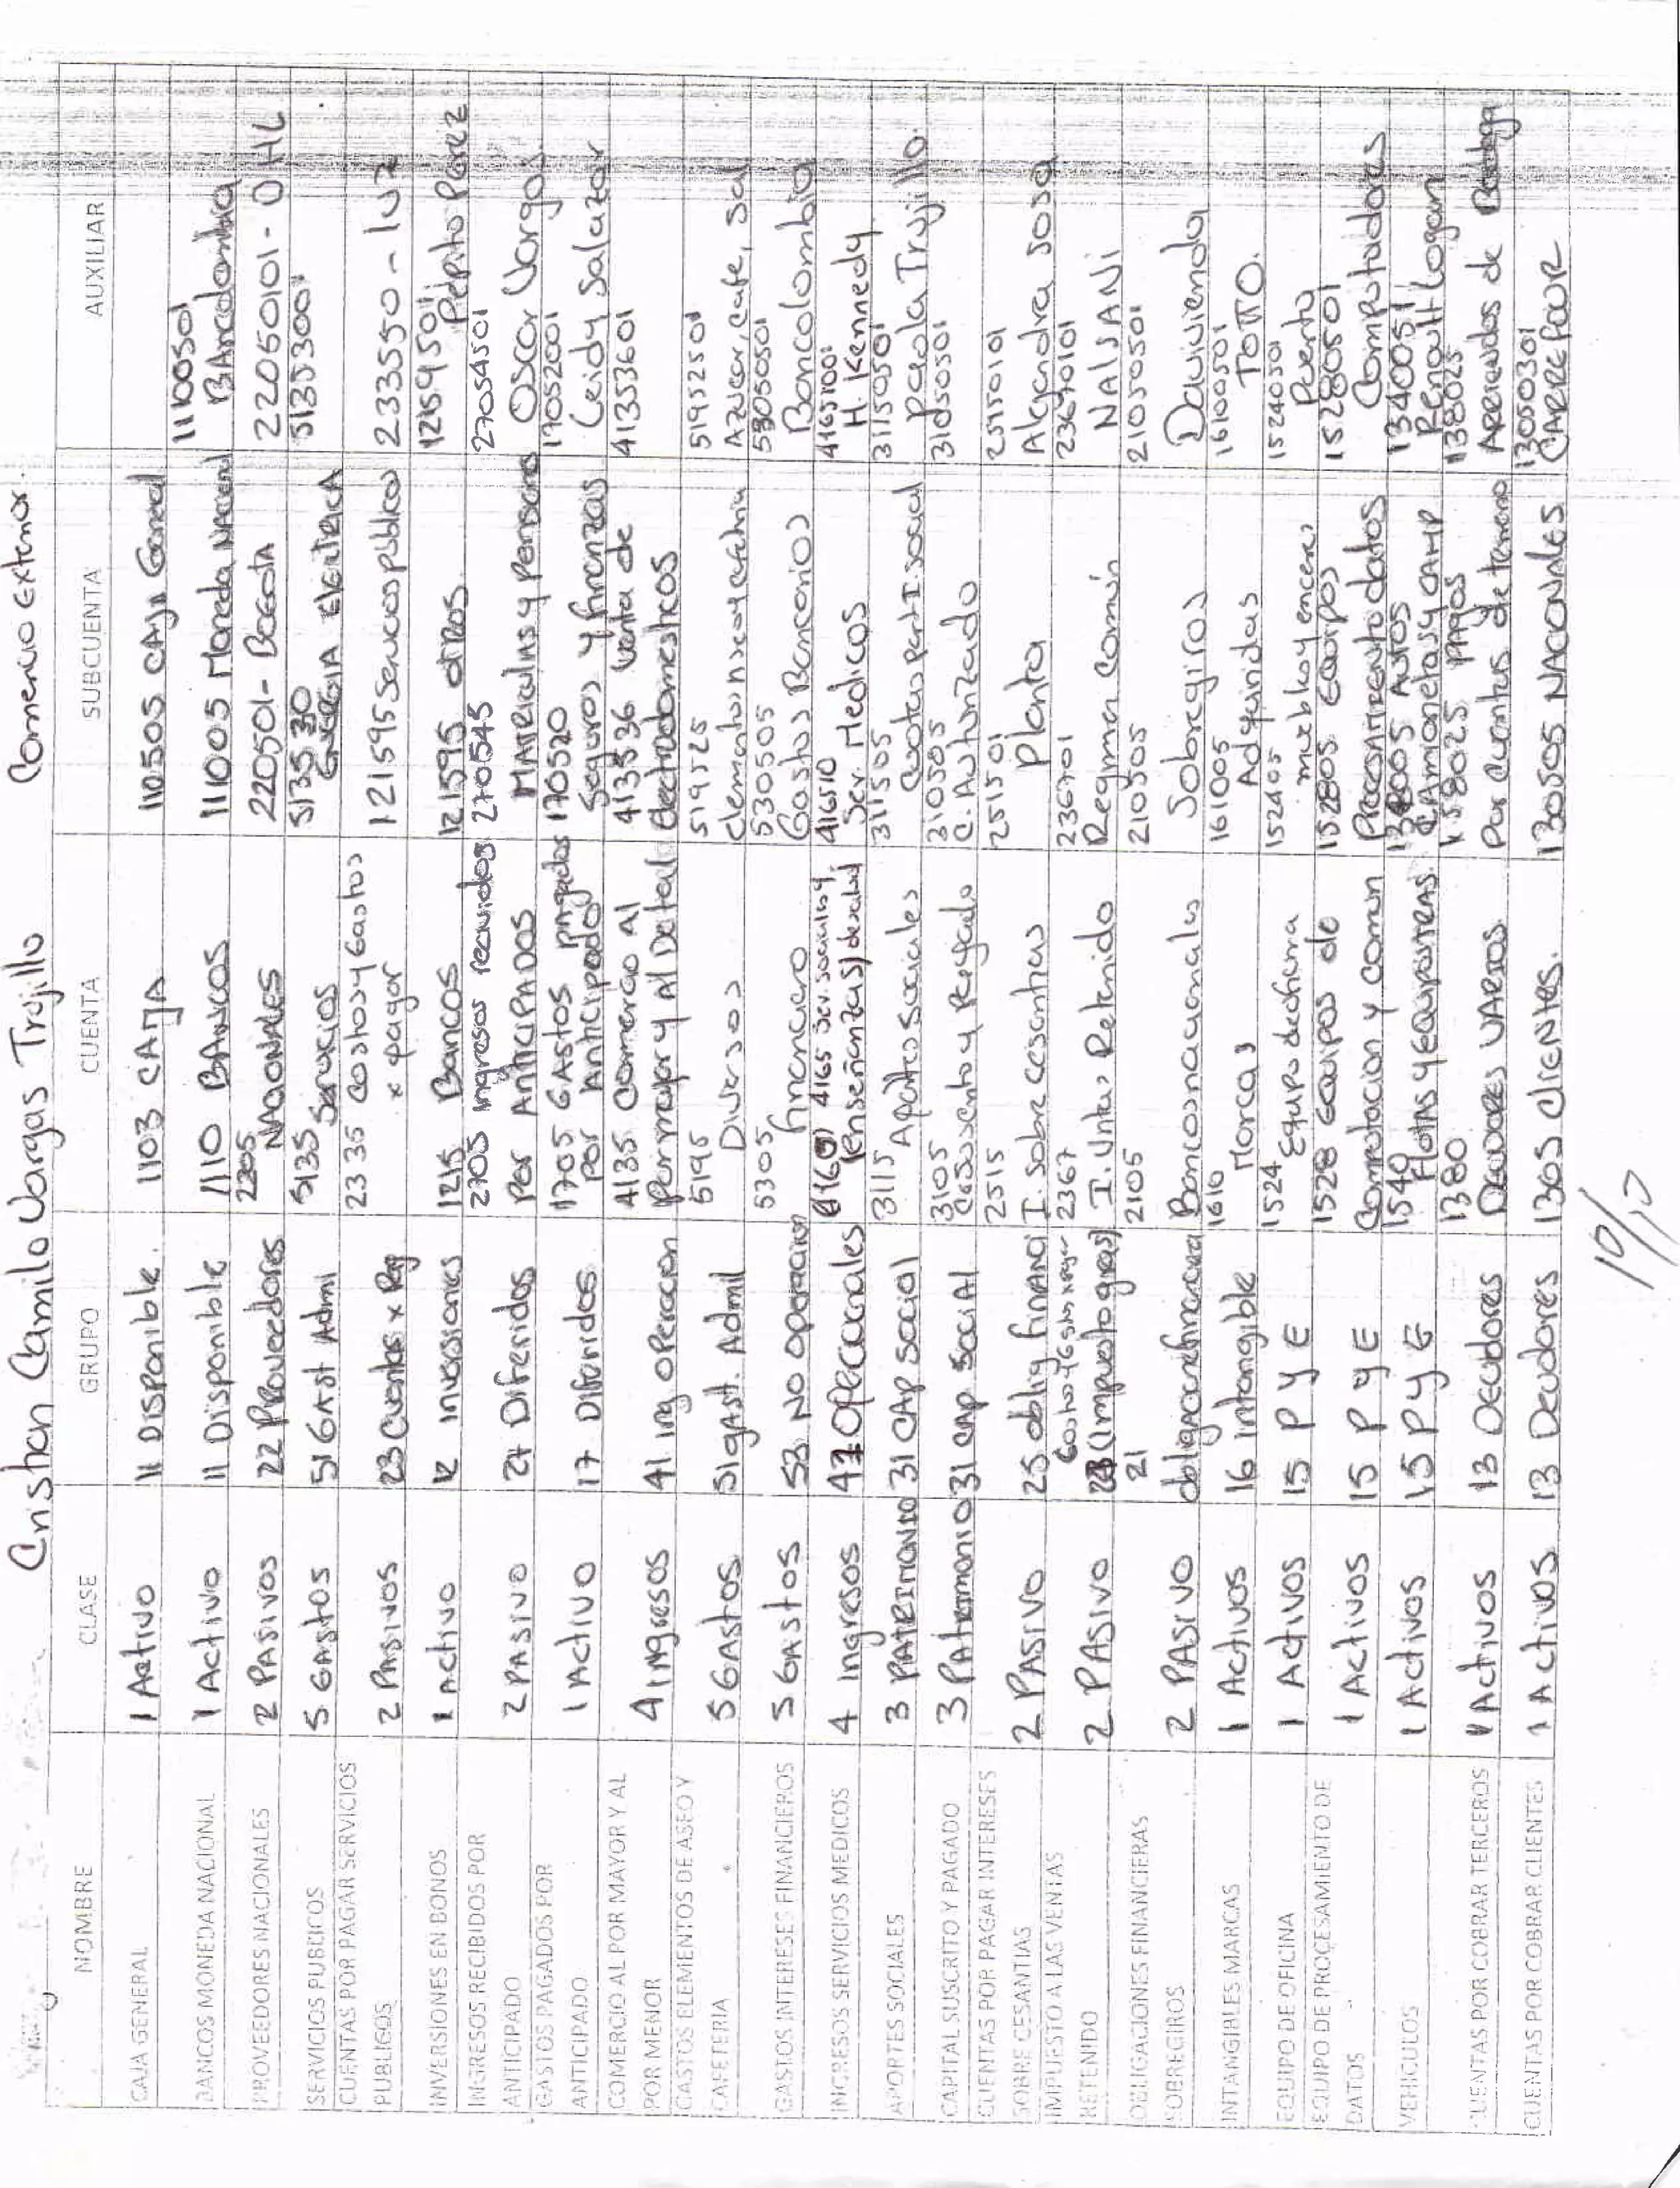 Cristian Camilo Vargas Trujillo Comercio Exterior.
NOMBRE CLASE GRUPO CUENTA SUBCUENTA AUXILIAR
CAJA GENERAL 1 Activo 11 Disponible. 1103 CAJA 110505 CAJA General
BANCOS MONEDA NACIONAL 1 Activo 11 Disponible 1110 BANCOS 111005 Moneda Nacional 11100501 BAncolombia
PROVEEDORES NACIONALES 2 PASivos 22 PRoveedores 2205 NACIONALES 220501- BOGOTA 22050101- OHL
SERVICIOS PUBLICOS 5 GAStos 51 GAST Admi 5135 Servicios 513530 ENERGIA ELECTRICA 51353001
CUENTAS POR PAGAR SERVICIOS
PUBLICOS 2 PASivos 23 Cuentas x Pag 2335 Costos y Gastos x pagar 121595 Servicios publicos 233550 - luz
INVERSIONES EN BONOS 1 Activo 12 Inversiones 1215 Bancos 121595 otros 12159501 Pepito Perez
INGRESOS RECIBIDOS POR
ANTICIPADO 2 PASIVO 27 Diferidos 2705 Ingresos recividos Por AnticiPADOS 270545 MATRiculas y Pensiones 27054501 Oscar Vargas
GASTOS PAGADOS POR
ANTICIPADO 1 Activo 17 Diferidos 1705 GAStos PAgados Por Anticipado 170520 Seguros y finanzas 17052001 Leidy Salazar
COMERCIO AL POR MAYOR Y AL
POR MENOR 4 Ingresos 41 Ing OPeracion 4135 Comercio al Por mayor y Al Detal 413536 Venta de electrodomesticos 41353601
GASTOS ELEMENTOS DE ASEO Y
CAFETERIA 5 GAStos 51 gASt. Admil 5195 Diversos 519525 elementos aseo y cafeteria 51952501 Azucar, cafe, sal
GASTOS INTERESES FINANCIEROS 5 GAStos 53 No Operacion 5305 financiero 530505 Gastos Bancarios 53050501 Bancolombia
INGRESOS SERVICIOS MEDICOS 4 Ingresos 41 OPeracionales 4165 Ser. sociales y (enseñanza(s) de salud 416510 Ser. Medicos 41651001 H. Kennedy
APORTES SOCIALES 3 PATRIMONIO 31 CAP social 3115 Aportes sociales 311505 Cuotas part I. social 31150501 Paola Trujillo.
CAPITAL SUSCRITO Y PAGADO 3 Patrimonio 31 CAP Social 3105 310505 C. Autorizado 31050501
CUENTAS POR PAGAR INTERESES
SOBRE CESANTIAS 2 PASIVO 25 oblig financi 2515 I. Sobre cesantias 251501 Planta 25150101 Alejandra Sosa
IMPUESTO A LAS VENTAS
RETENIDO 2 PASivo 2367 I. Vntas Retenido 236701 Regimen Común 23670101 NALSANI
OBLIGACIONES FINANCIERAS
SOBREGIROS 2 PASIVO 21 obligacion financiera 2105 Bancos nacionales 210505 Sobregiros 21050501 Davivienda
INTANGIBLES MARCAS 1 Activos 16 intangible 1610 Marcas 161005 Adquiridas 16100501 TOTTO.
EQUIPO DE OFICINA 1 Activos 15 P Y E 1524 Equipo de oficina 152405 muebles y enceres 15240501 Puerta
EQUIPO DE PROCESAMIENTO DE
DATOS 1 Activos 15 P y E 1528 Equipos de Computacion y comun 152805 Equipos Procesamiento datos 15280501 Computadores
VEHICULOS 1 Activos 15 P y E 1540 flotas y Equipo TRAS. AUTOS CAmionetas y CAMP Renault Logan
CUENTAS POR COBRAR TERCEROS 1 Activos 13 Deudores 1380 Deudores VARIOS. PAgos Por cuentas de terreno 138025 Arriendos de
CUENTAS POR COBRAR CLIENTES 1 Activos 13 Deudores 1305 clientes. 130505 NACIONALES 13050301 CARREFOUR
10/10